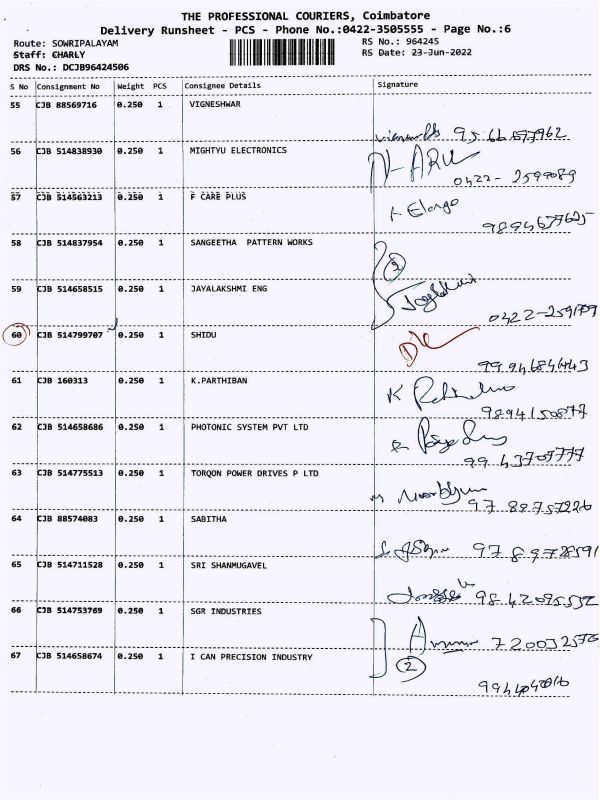 THE PROFESSIONAL COURIERS, Coimbatore
Delivery Runsheet - PCS - Phone No.:0422-3505555 - Page No.:6
Route: SOWRIPALAYAM RS No.: 964245
Staff: CHARLY RS Date: 23-Jun-2022
DRS No.: DCJB96424506
S No Consignment No Weight PCS Consignee Details Signature
55 CJB 88569716 0.250 1 VIGNESHWAR
56 CJB 514838930 0.250 1 MIGHTYU ELECTRONICS
0422-2599089
57 CJB 514563213 0.250 1 F CARE PLUS
K Elango
9894677625
58 CJB 514837954 0.250 1 SANGEETHA PATTERN WORKS
59 CJB 514658515 0.250 1 JAYALAKSHMI ENG
60 CJB 514799707 0.250 1 SHIDU
61 CJB 160313 0.250 1 K.PARTHIBAN
9894150877
62 CJB 514658686 0.250 1 PHOTONIC SYSTEM PVT LTD
63 CJB 514775513 0.250 1 TORQON POWER DRIVES P LTD
64 CJB 88574083 0.250 1 SABITHA
65 CJB 514711528 0.250 1 SRI SHANMUGAVEL
66 CJB 514753769 0.250 1 SGR INDUSTRIES
67 CJB 514658674 0.250 1 I CAN PRECISION INDUSTRY
2